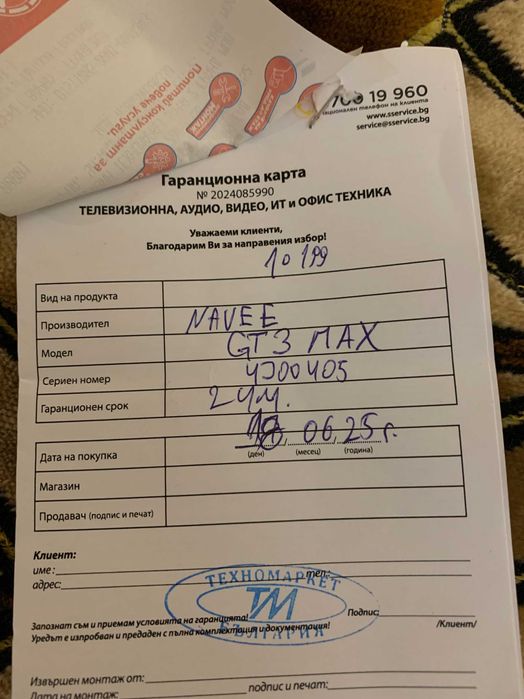 Попитай консултант за
повече услуги.
МОНТАЖ
700 19 960
национален телефон на клиента
www.sservice.bg
service@sservice.bg
Гаранционна карта
№ 2024085990
ТЕЛЕВИЗИОННА, АУДИО, ВИДЕО, ИТ и ОФИС ТЕХНИКА
Уважаеми клиенти,
Благодарим Ви за направения избор!
10199
Вид на продукта
Производител NAVEE
Модел GT3 MAX
Сериен номер 4J00405
Гаранционен срок 24м.
Дата на покупка 18 06, 25 г.
(ден) (месец) (година)
Магазин
Продавач (подпис и печат)
Клиент:
име: тел.:
адрес:
ТЕХНОМАРКЕТ
ТМ
БЪЛГАРИЯ
Запознат съм и приемам условията на гаранцията! Подпис:
Уредът е изпробван и предаден с пълна комплектация и документация! /Клиент/
Извършен монтаж от:
Дата на монтаж: подпис и печат: